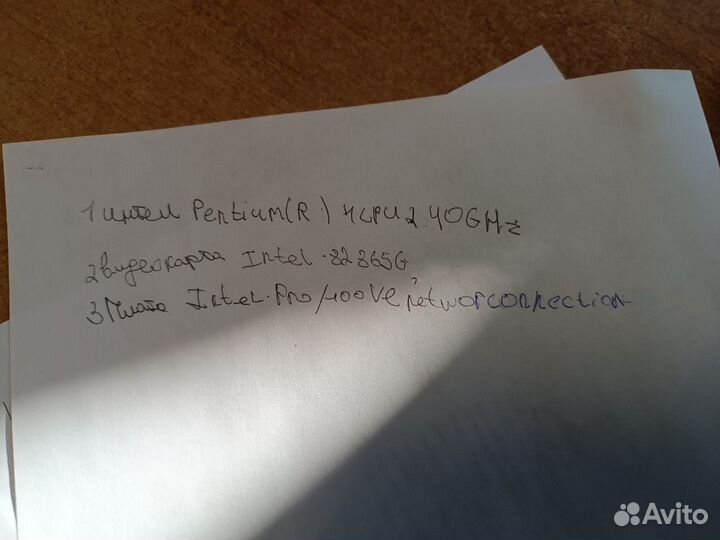 1 интел Pentium(R) 4 CPU 2.40GHz
2 видеокарта Intel.82865G
3 Плата Intel.Pro/100VE networconnection
Avito